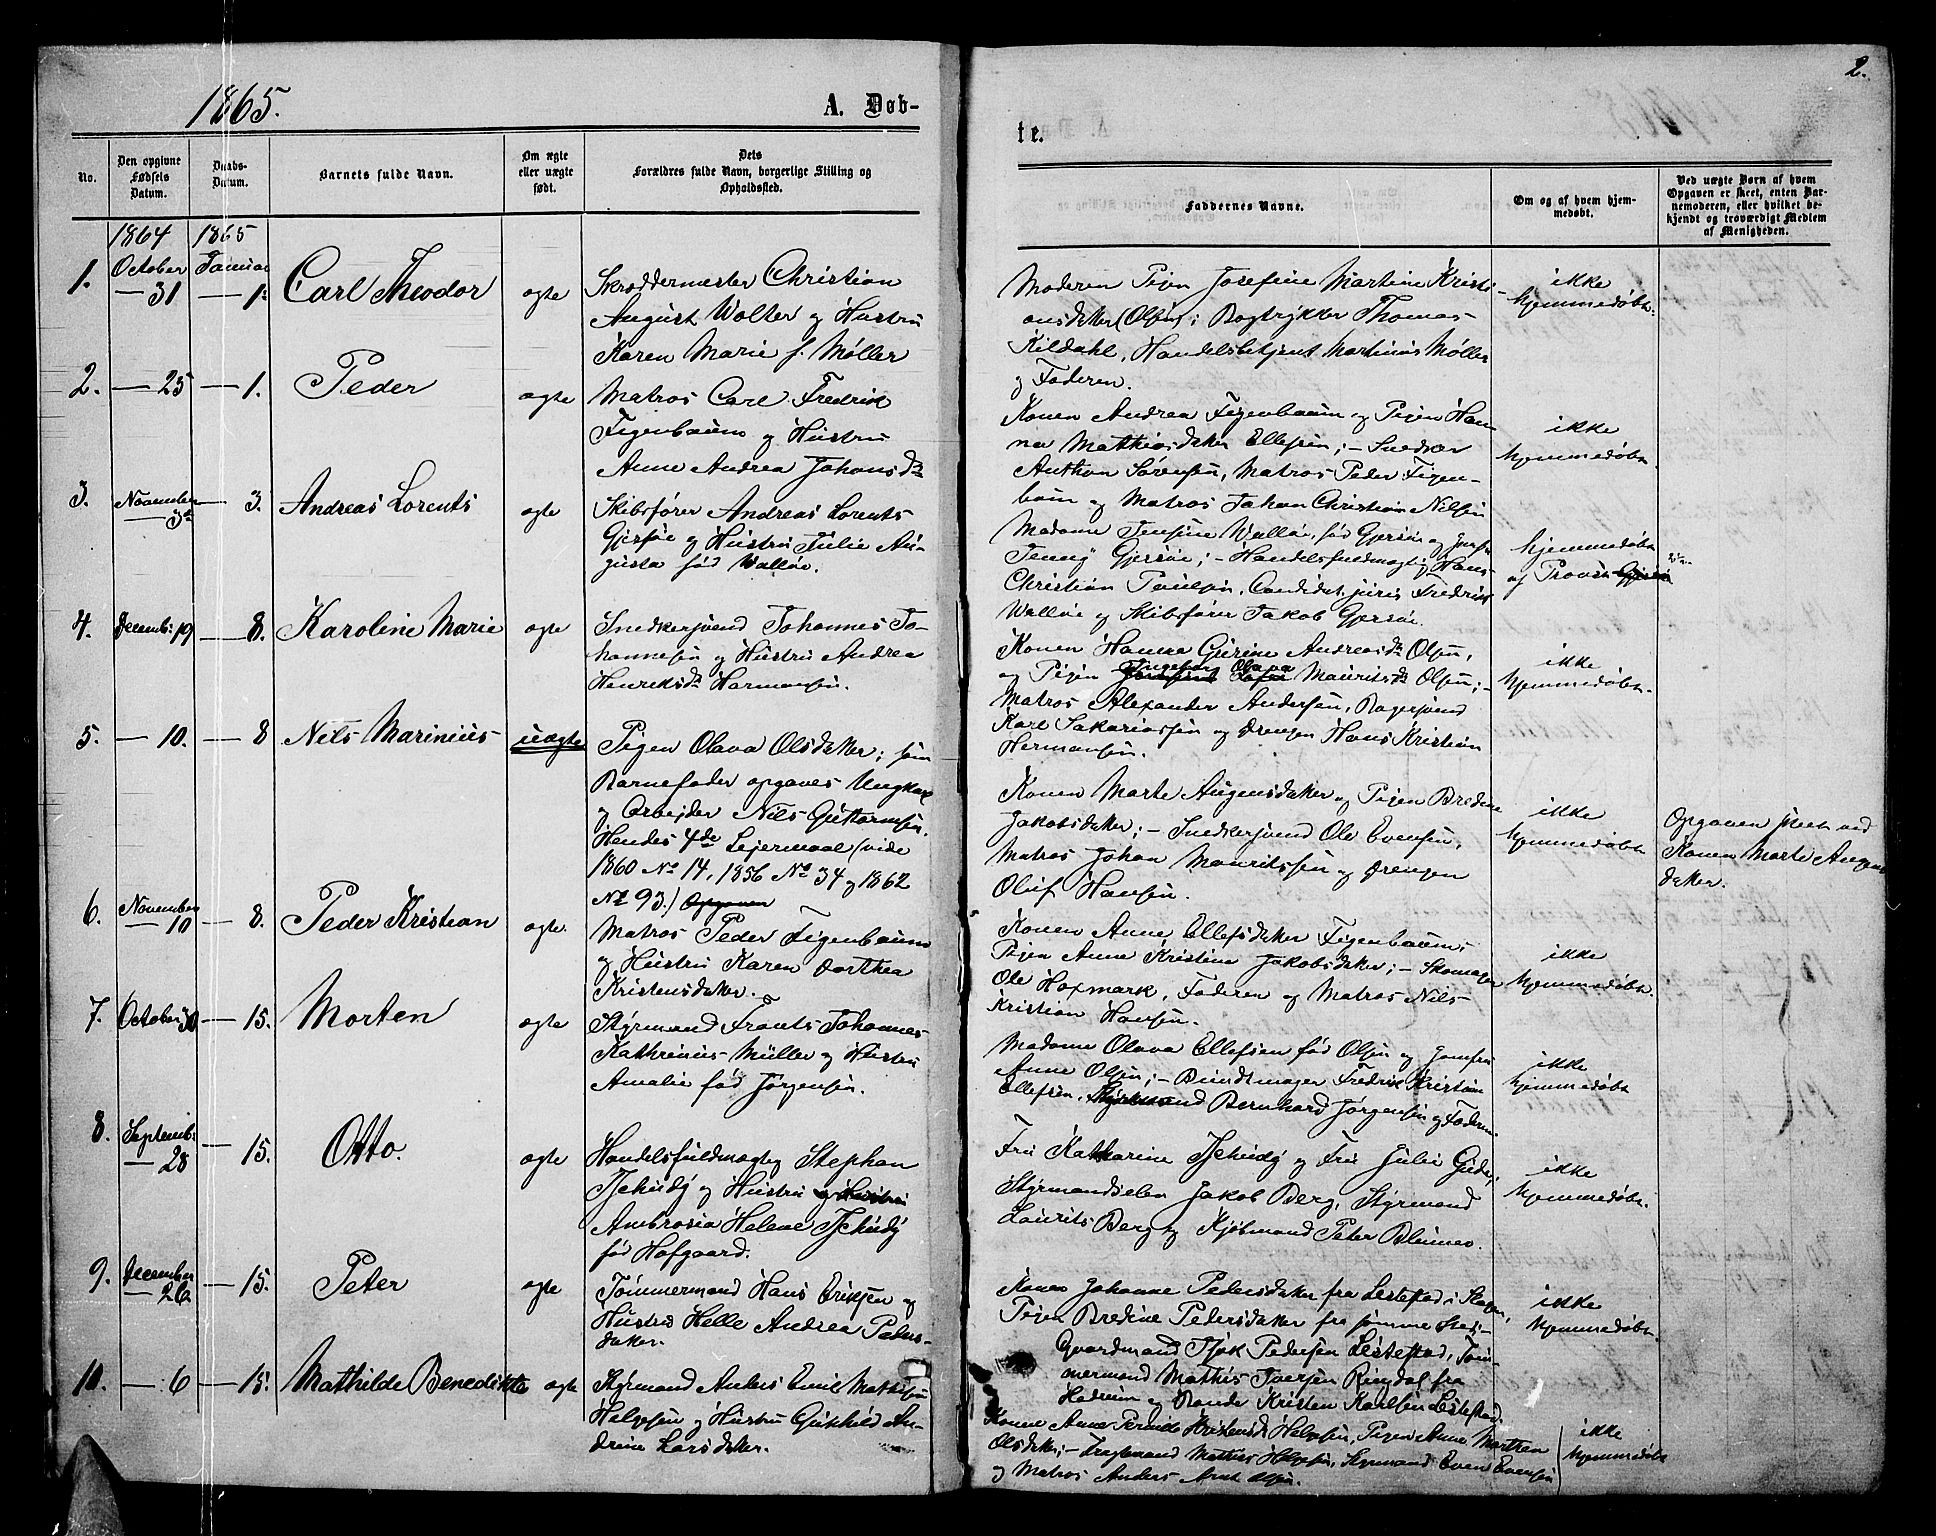 1865.
A. Døb-
No.
Den opgivne Fødsels Datum.
Daabs-Datum.
Barnets fulde Navn.
Om ægte eller uægte født.
Dets Forældres fulde Navn, borgerlige Stilling og Opholdssted.
1864 1865
1. October 31 Januar 1. Carl Theodor ægte Skræddermester Christian
August Wolter og Hustru
Karen Marie f. Møller
2. — 25 — 1. Peder ægte Matros Carl Fredrik
Figenbaum og Hustru
Anne Andrea Johansdr
3. November — 3. Andreas Lorents ægte Skibsfører Andreas Lorents
Gjersøe og Hustru Julie Au-
gusta født Walløe.
4. Decembr 19 — 8. Karoline Marie ægte Snedkersvend Johannes Jo-
hannesen og Hustru Andrea
Henriksdr Hermansen.
5. — 10. — 8 Nils Marinius uægte Pigen Olava Olsdatter; som
Barnefader opgaves Ungkar
og Arbejder Nils Guttormsen.
Hendes 4de Lejermaal (vide
1860 No 14, 1856 No 34 og 1862
No 93.) Opgaven
6. November 10 — 8. Peder Kristian ægte. Matros Peder Figenbaum
og Hustru Karen Dorthea
Kristensdatter.
7. October 30 — 15. Morten ægte Styrmand Frants Johannes
Kathrinus Müller og Hustru
Amalie født Jørgensen.
8. Septembr 28 — 15. Otto. ægte Handelsfuldmægtig Stephan
Tschudy og Hustru og Hustru
Ambrosia Helene Tschudy
født Hofgaard.
9. December 26 — 15. Peter ægte Tømmermand Hans Eriksen og
Hustru Helle Andrea Peders-
datter.
10. — 6 — 15. Mathilde Benedikte ægte Styrmand Anders Emil Mathisen
Helgesen og Hustru Gunhild An-
drine Larsdatter.
2.
te.
Faddernes Navne.
Om og af hvem hjemmedøbt.
Ved uægte Børn af hvem Opgaven er skeet, enten Barnemoderen, eller hvilket bekjendt og troværdigt Medlem af Menigheden.
Moderen Pigen Josefine Martine Kristi-
ansdatter (Olsen); Bogtrykker Thomas
Kildahl, Handelsbetjent Martinius Møller
og Faderen.
ikke
hjemmedøbt.
Konen Andrea Figenbaum og Pigen Han-
na Mathiasdatter Ellefsen; — Snedker
Anthon Sørensen, Matros Peder Figen-
baum og Matros Johan Christian Nilsen
ikke
hjemmedøbt.
Madame Jensine Walløe, født Gjersøe og Jomfru
Jenny Gjersøe; — Handelsfuldmægtig Hans
Christian Paulsen, Candidat juris Fredrik
Walløe og Skibsfører Jakob Gjersøe.
hjemmedøbt
af Provst Gjersøe
Konen Hanna Gurine Andreasdr Olsen,
og Pigen Ingeborg Olava Mauritsdr Olsen; —
Matros Alexander Andersen, Bagersvend
Karl Sakariassen og Drengen Hans Kristian
Hermansen.
ikke
hjemmedøbt.
Konen Marte Augensdatter og Pigen Bredine
Jakobsdatter; — Snedkersvend Ole Evensen,
Matros Johan Mauritssen og Drengen
Oluf Hansen.
ikke
hjemmedøbt
Opgaven skeet ved
Konen Marte Augens
datter.
Konen Anne Ellefsdatter Figenbaum;
Pigen Anne Kristine Jakobsdatter; — Skomager
Ole Haxmark, Faderen og Matros Nils
Kristian Hansen.
ikke
hjemmedøbt.
Madame Olava Ellefsen født Olsen og Jomfru
Anne Olsen; — Bundtmager Fredrik Kristian
Ellefsen, Styrmand Bernhard Jørgensen og Faderen.
ikke
hjemmedøbt
Fru Katharine Tschudy og Fru Julie Gude;
Styrmandselev Jakob Berg, Styrmand
Laurits Berg og Kjøbmand Peter Blumer.
ikke
hjemmedøbt.
Konen Johanne Pedersdatter fra Lestestad i Slagen,
Pigen Bredine Pedersdatter fra samme Sted; —
Gaardmand Isak Pedersen Lestestad, Tøm-
mermand Mathis Iversen Ringdal fra
Hedrum og Bonde Kristen Karlsen Lestestad.
ikke
hjemmedøbt.
Konen Anne Pernille Kristensdr Helgesen, Pigen Anne Marthea
Olsdatter; — Mathis Helgesen, Styrmand Even Evensen
og Matros Anders Olsen.
ikke
hjemmedøbt